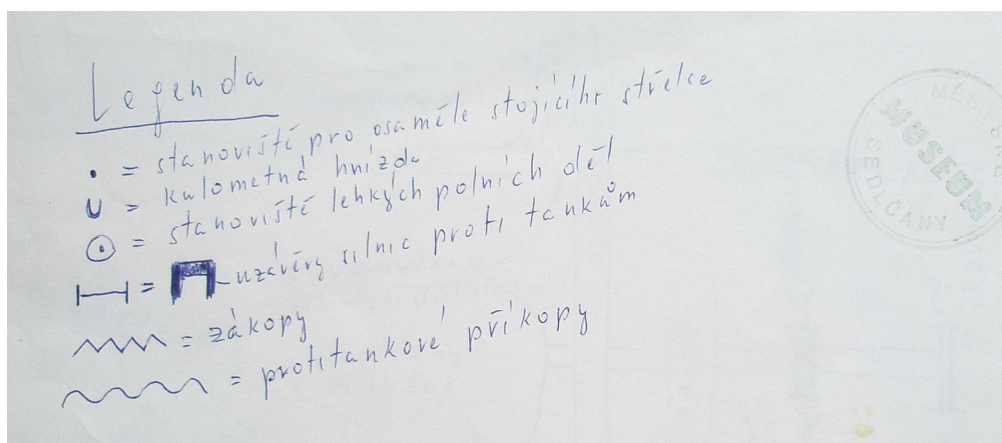 Legenda
• = stanoviště pro osaměle stojícíhr střelce
U = kulometná hnízda
⊙ = stanoviště lehkých polních děl
= uzávěry silnic proti tankům
= zákopy
= protitankové příkopy
MĚSTSKÉ
MUSEUM
SEDLČANY